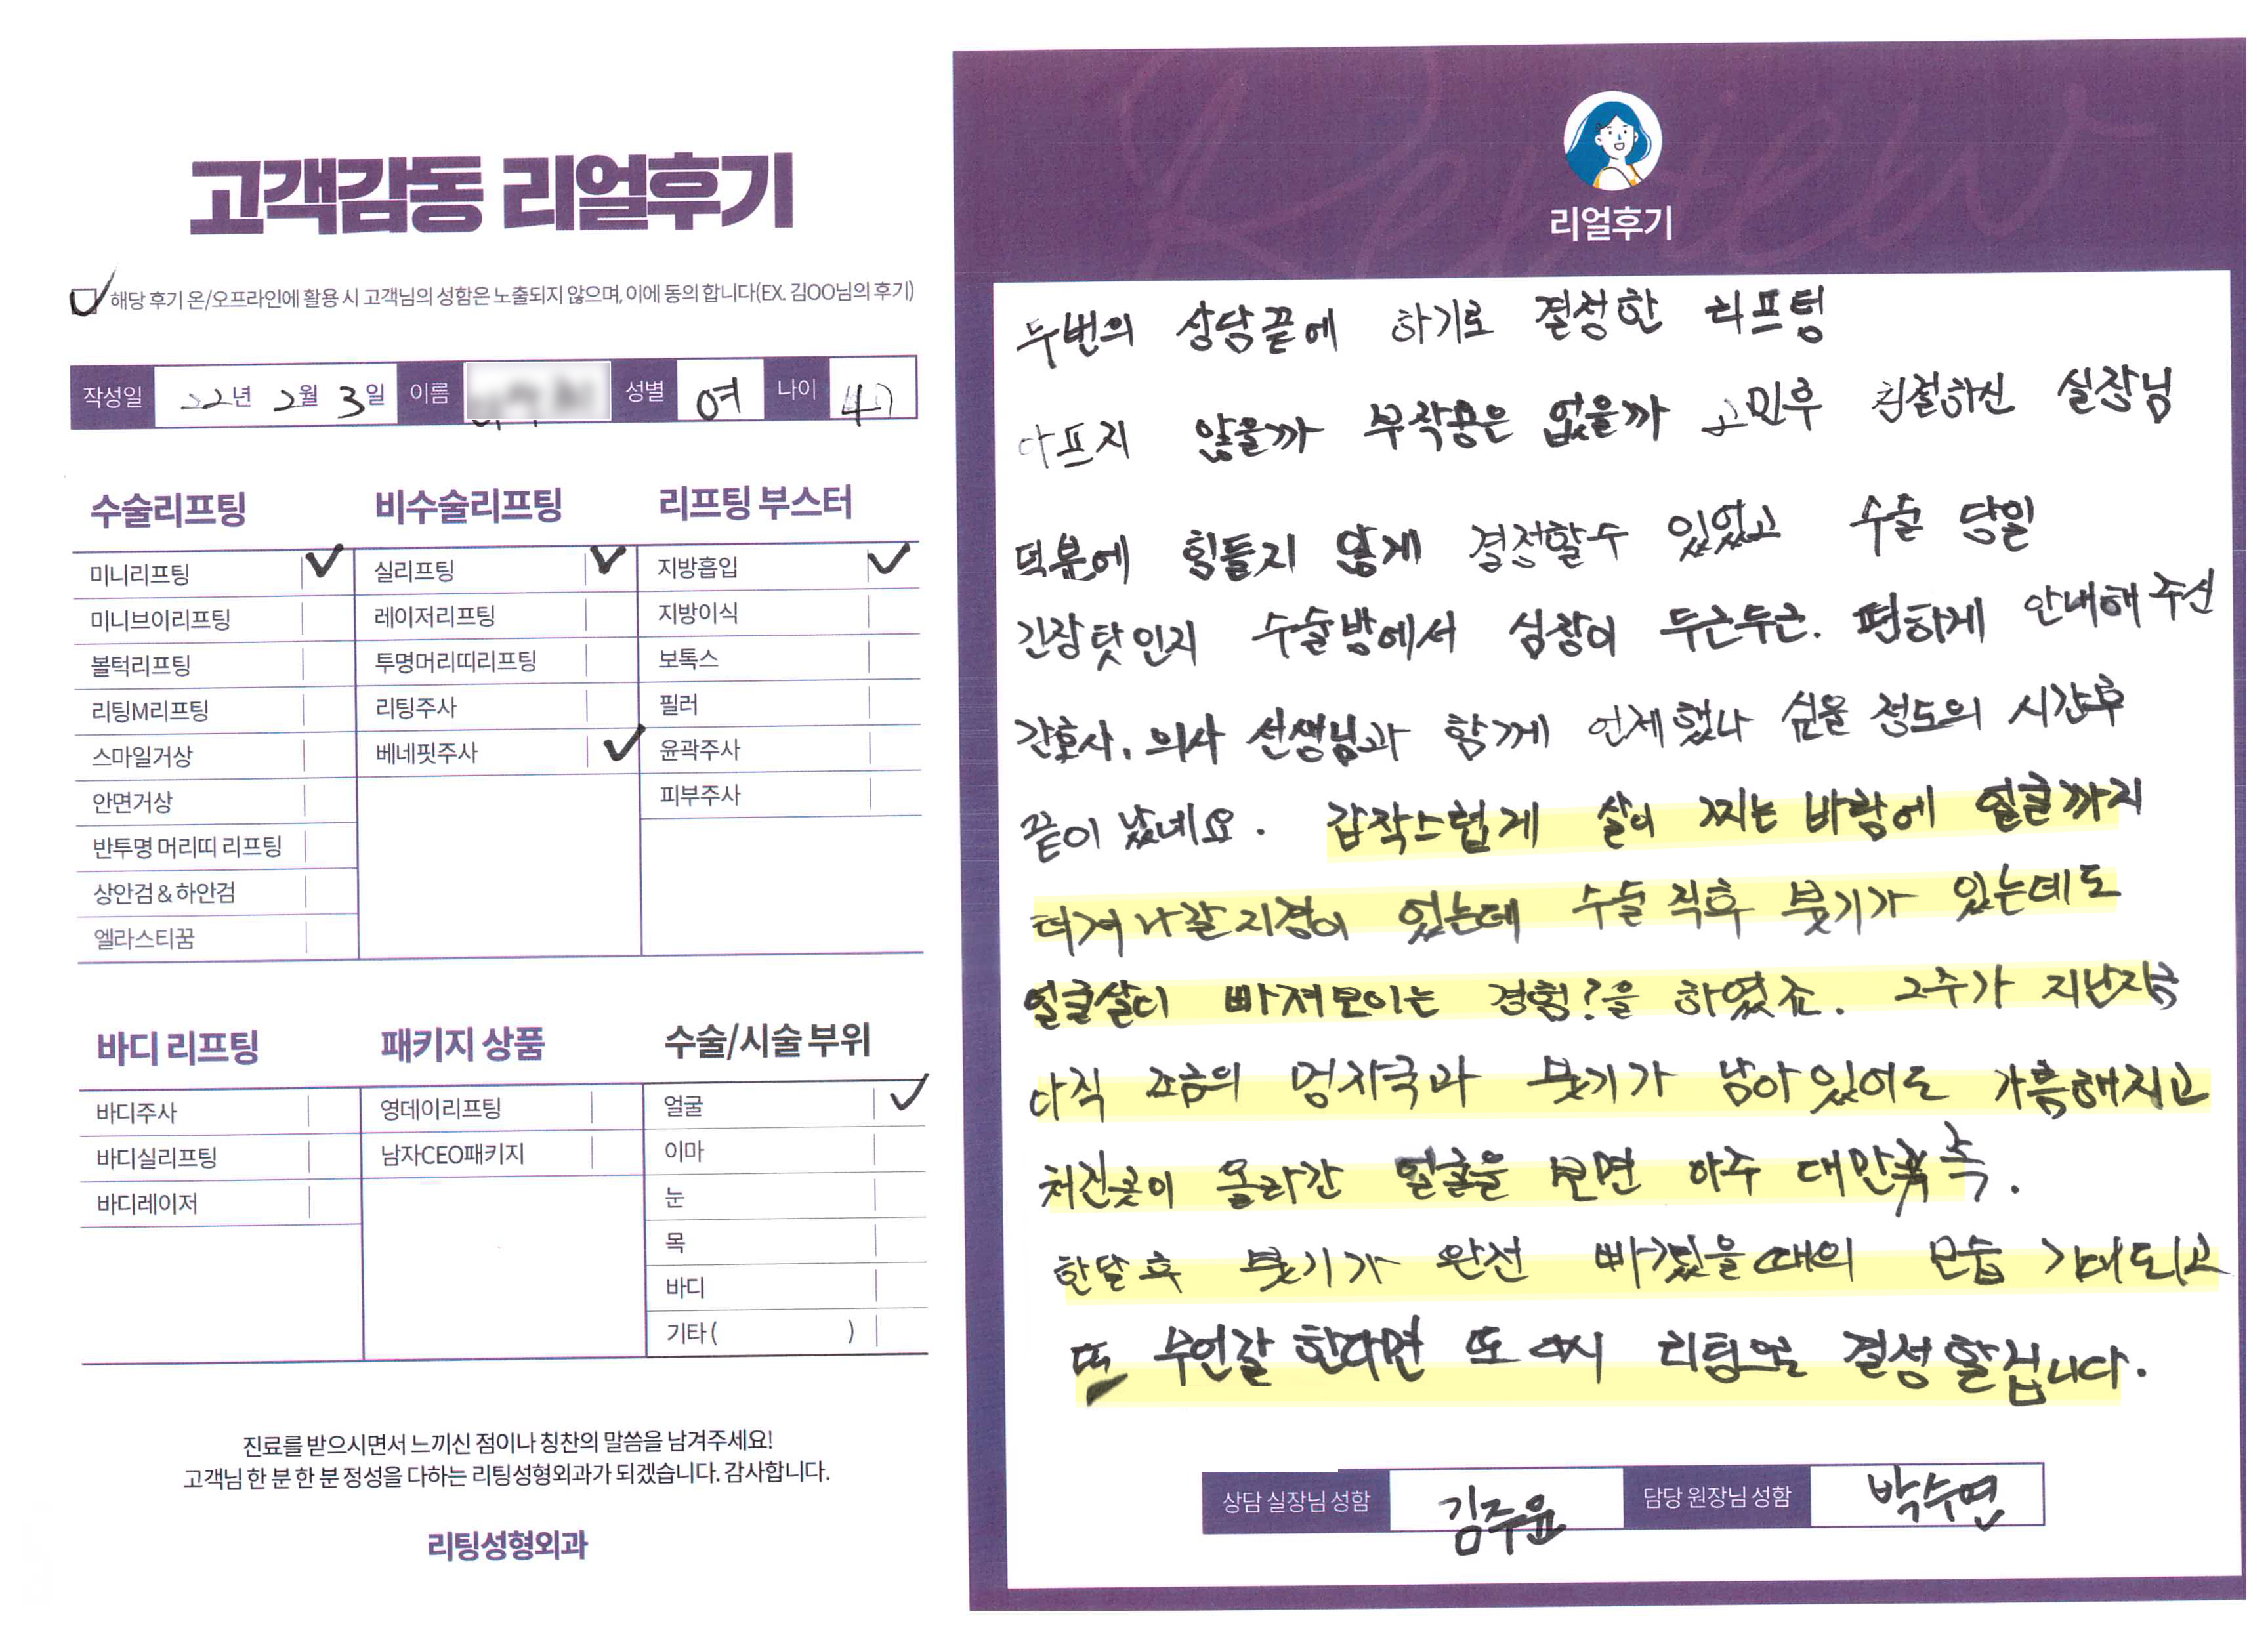 고객감동 리얼후기
해당 후기 온/오프라인에 활용 시 고객님의 성함은 노출되지 않으며, 이에 동의 합니다(EX. 김OO님의 후기)
작성일 22년 2월 3일 이름 성별 여 나이
수술리프팅
미니리프팅
미니브이리프팅
볼턱리프팅
리팅M리프팅
스마일거상
안면거상
반투명 머리띠 리프팅
상안검 & 하안검
엘라스티꿈
비수술리프팅
실리프팅
레이저리프팅
투명머리띠리프팅
리팅주사
베네핏주사
리프팅 부스터
지방흡입
지방이식
보톡스
필러
윤곽주사
피부주사
바디 리프팅
바디주사
바디실리프팅
바디레이저
패키지 상품
영데이리프팅
남자CEO패키지
수술/시술 부위
얼굴
이마
눈
목
바디
기타 ( )
진료를 받으시면서 느끼신 점이나 칭찬의 말씀을 남겨주세요!
고객님 한 분 한 분 정성을 다하는 리팅성형외과가 되겠습니다. 감사합니다.
리팅성형외과
Review
리얼후기
두번의 상담끝에 하기로 결정한 리프팅
아프지 않을까 부작용은 없을까 고민후 친절하신 실장님
덕분에 힘들지 않게 결정할수 있었고 수술 당일
긴장 탓인지 수술방에서 심장이 두근두근. 편하게 안내해 주신
간호사, 의사 선생님과 함께 언제 했나 싶을 정도의 시간후
끝이 났네요. 갑작스럽게 살이 찌는 바람에 얼굴까지
터져 나갈지경이 었는데 수술 직후 붓기가 있는데도
얼굴살이 빠져보이는 경험?을 하였죠. 2주가 지난지금
아직 조금의 멍자국과 붓기가 남아 있어도 갸름해지고
처진곳이 올라간 얼굴을 보면 아주 대만족.
한달 후 붓기가 완전 빠졌을때의 모습 기대되고
또 무언갈 한다면 또 역시 리팅으로 결정 할겁니다.
상담 실장님 성함 김주윤 담당 원장님 성함 박수연